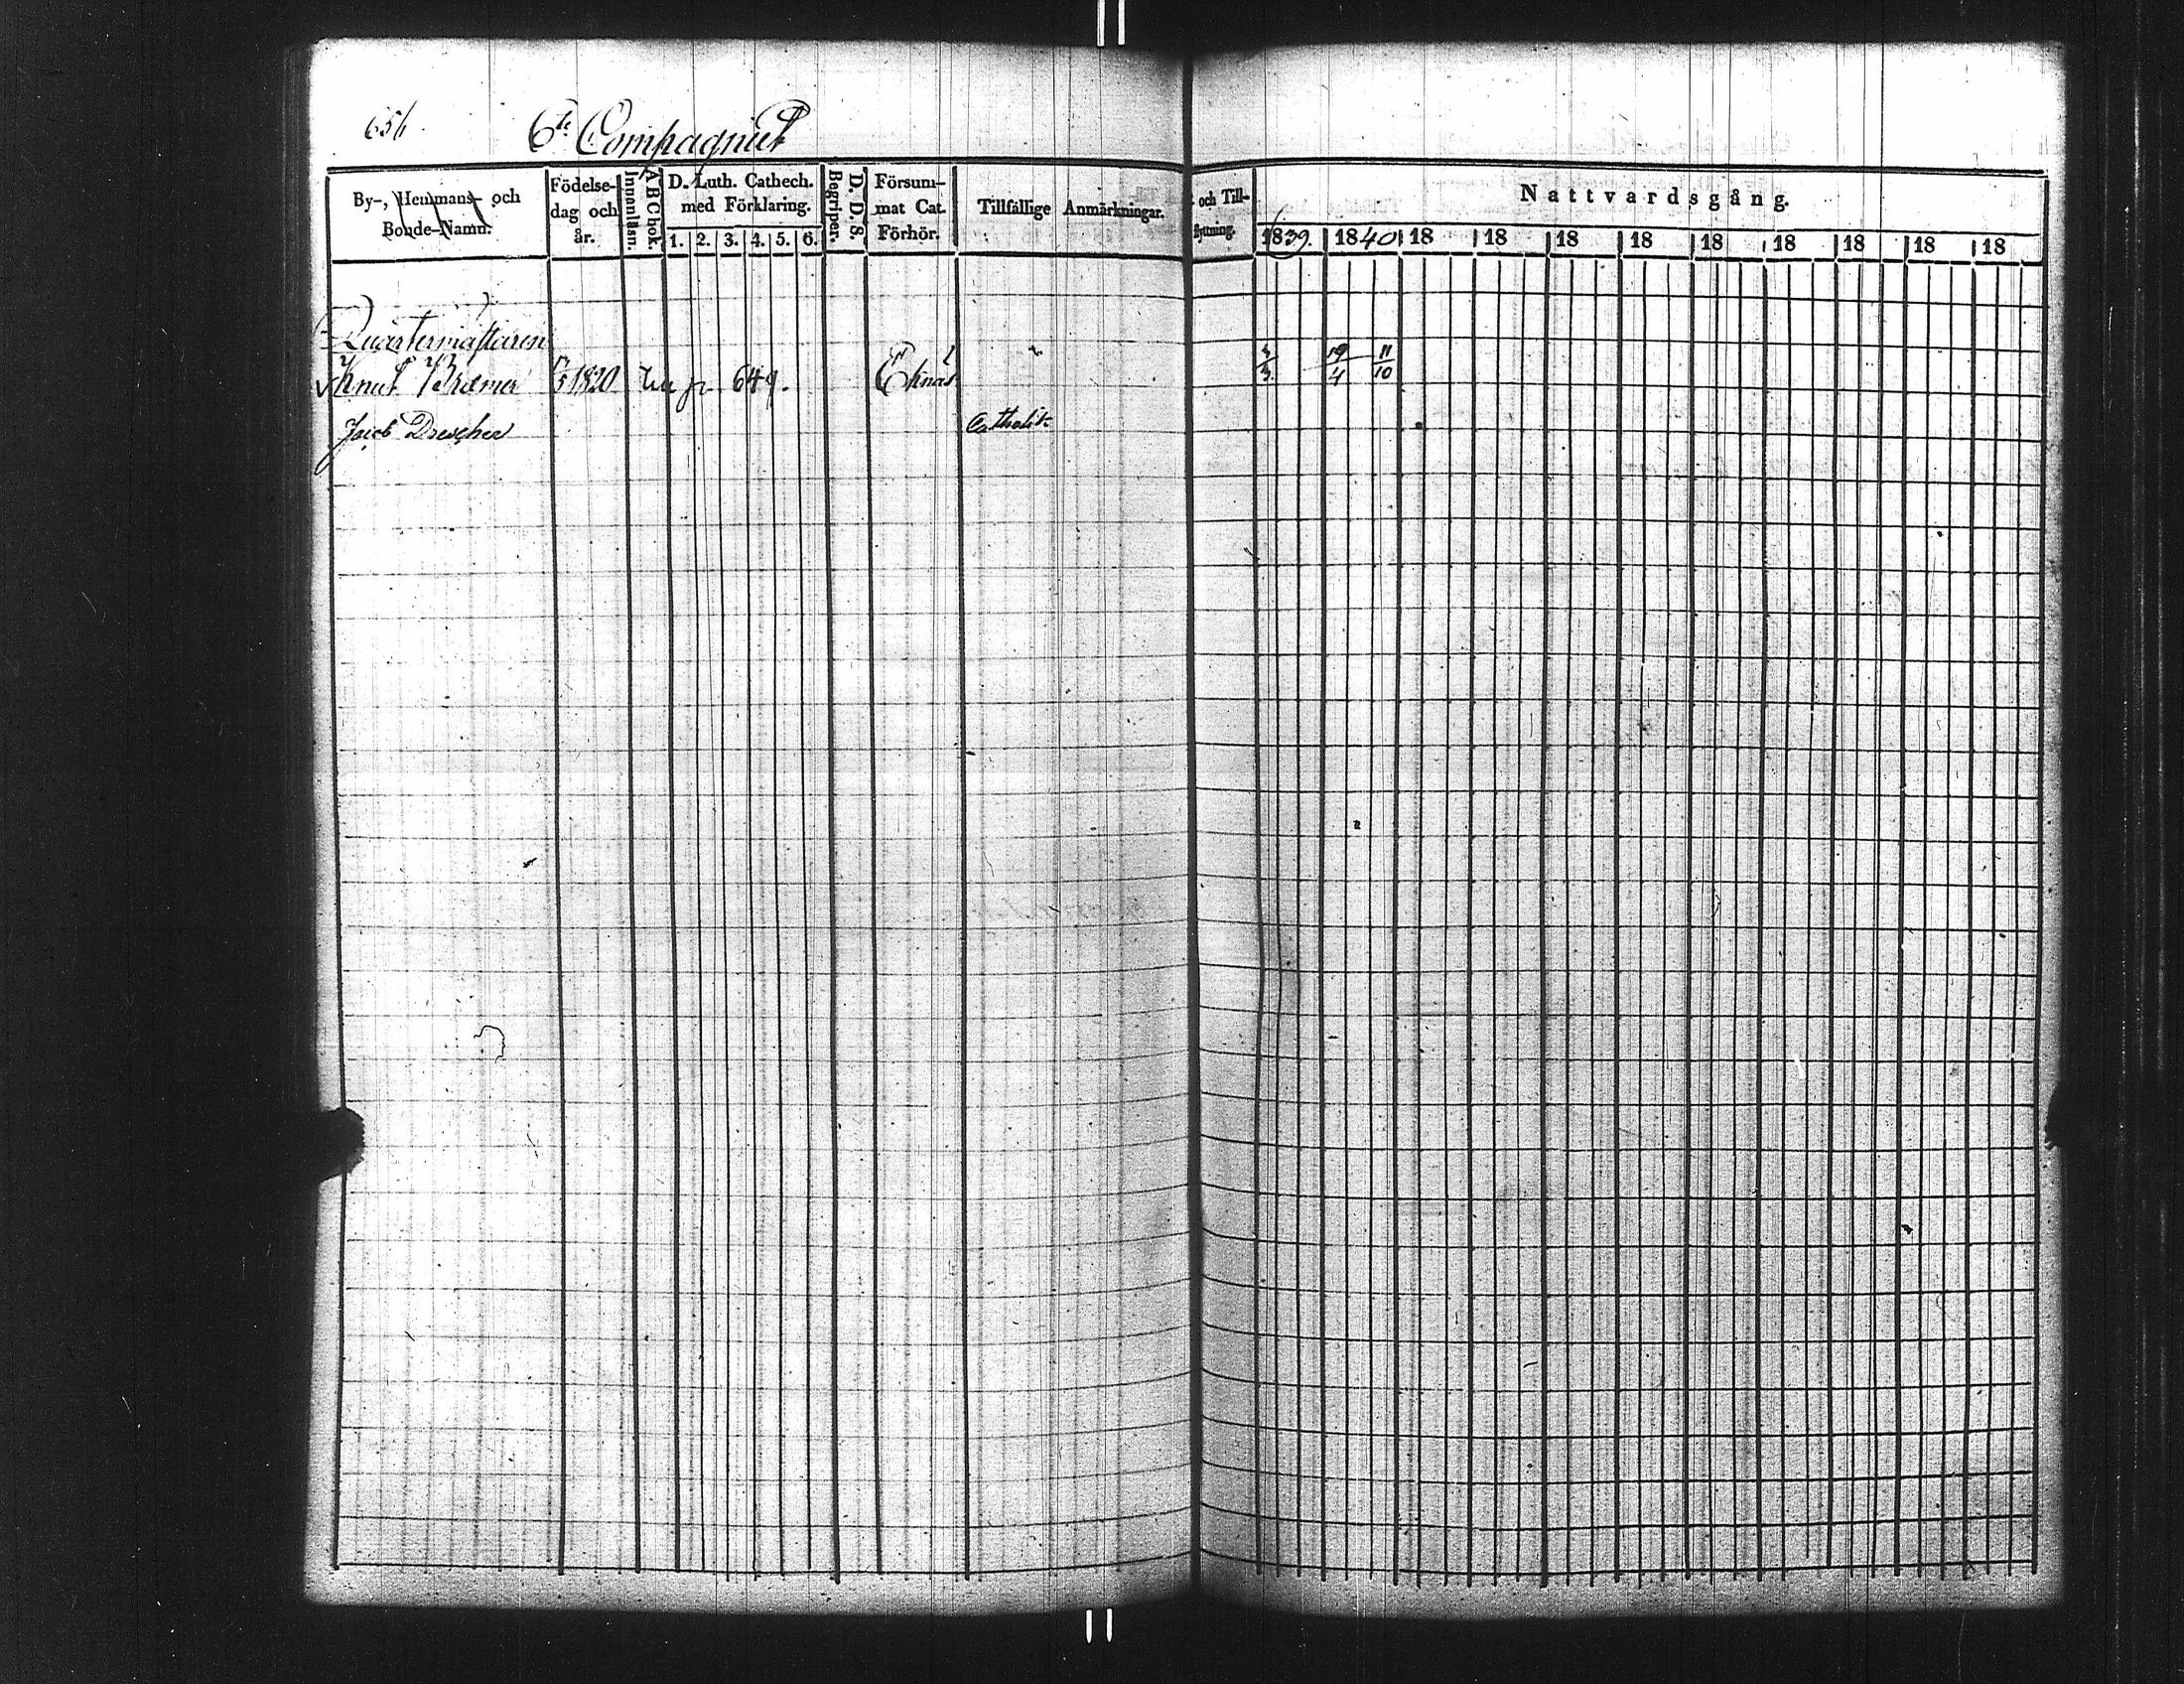 656
6te Compagniet
By-, Hemmans- och
Bonde-Namn.
Födelse-
dag och
år.
ABCbok.
Innanläsn.
D. Luth. Cathech.
med Förklaring.
1. 2. 3. 4. 5. 6.
D. D. S.
Begriper.
Försum-
mat Cat.
Förhör.
Tillfällige Anmärkningar.
och Till-
flyttning.
Nattvardsgång.
1839. 1840 18 18 18 18 18 18 18 18 18
Quartermästaren
Knut Bremer 1820 649. Eknäs 19/4 11/10
Jacob Drescher Catholik